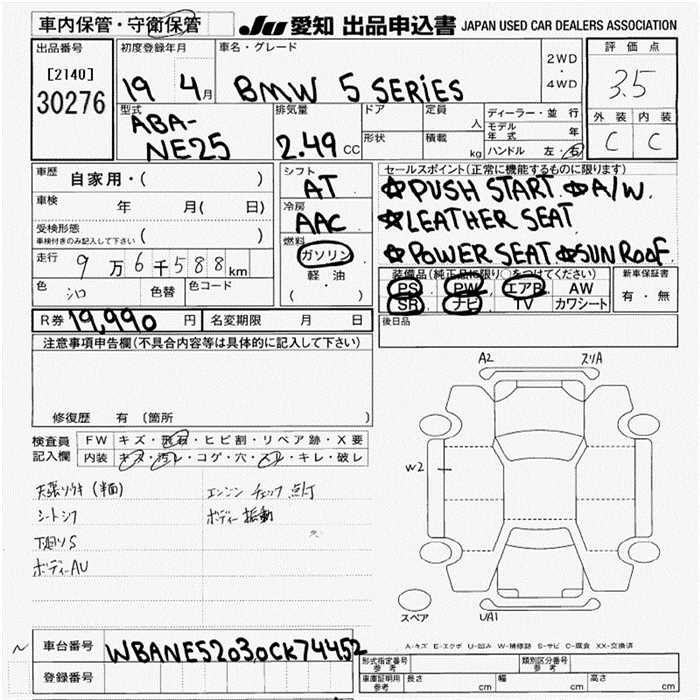 車内保管・守衛保管 JU 愛知 出品申込書 JAPAN USED CAR DEALERS ASSOCIATION
出品番号 初度登録年月 車名・グレード 2WD・4WD 評価点
[2140] 19 4月 BMW 5 SERIES 3.5
30276
型式 排気量 ドア 定員 人 ディーラー・並行 外装 内装
ABA-NE25 2.49 CC 形状 積載 kg モデル年式 年 C C
ハンドル 左・右
車歴 自家用・( ) シフト AT セールスポイント(正常に機能するものに限ります)
☆PUSH START. ☆A/W.
車検 年 月( 日) 冷房 AAC ☆LEATHER SEAT
受検形態 車検付きのみ記入して下さい ( ) 燃料 ☆POWER SEAT ☆SUN ROOF.
走行 9万6千588km ガソリン 装備品(純正品に限り○をつけてください) 新車保証書
色 シロ 色替 色コード 軽・油 PS PW エアB AW 有・無
( ) SR ナビ TV カワシート
R券 19,990 円 名変期限 月 日 後日品
注意事項申告欄(不具合内容等は具体的に記入して下さい)
修復歴 有 (箇所 )
A2 スリA
検査員記入欄 FW キズ・飛石・ヒビ割・リペア跡・X要
内装 キズ・汚レ・コゲ・穴・スレ・キレ・破レ
W2
天張ソウキ(半面) エンジン チェック 点灯
シートシワ ボディー振動
下廻りS
ボディーAU
スペア UA1
A-キズ E-エクボ U-凹み W-補修跡 S-サビ C-腐食 XX-交換済
車台番号 WBANE52030CK74452
登録番号
形式指定番号 参考 類別区分番号 参考
車庫証明用 参考 長さ cm 幅 cm 高さ cm